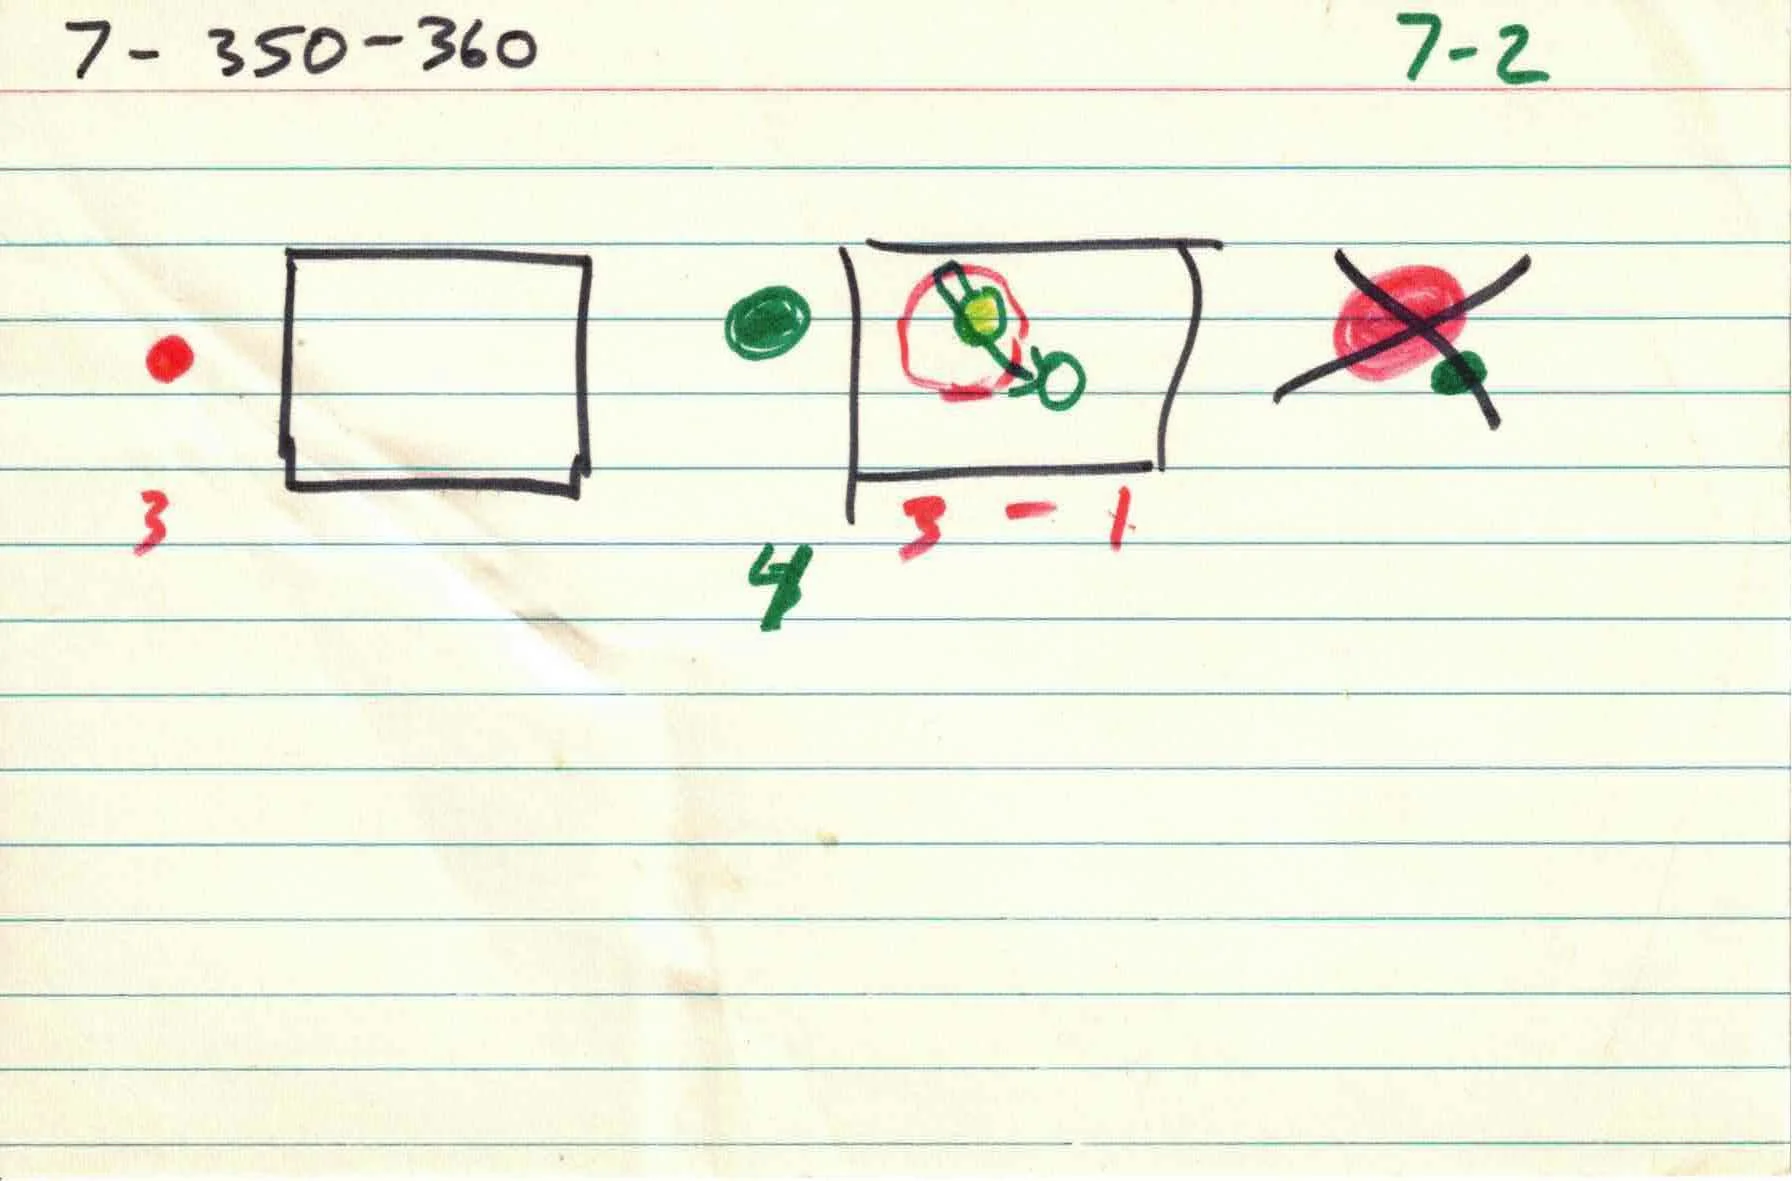 7 - 350 - 360
7-2
3
3 - 1
4